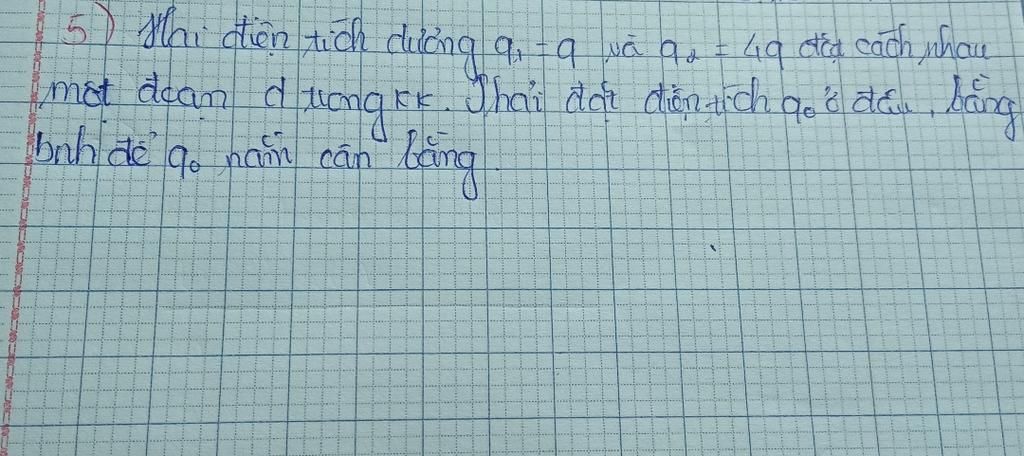 5) Hai điện tích dương q₁ = q và q₂ = 4q đặt cách nhau
một đoạn d trong KK. Phải đặt điện tích q₀ ở đâu, bằng
bnh để q₀ nằm cân bằng.